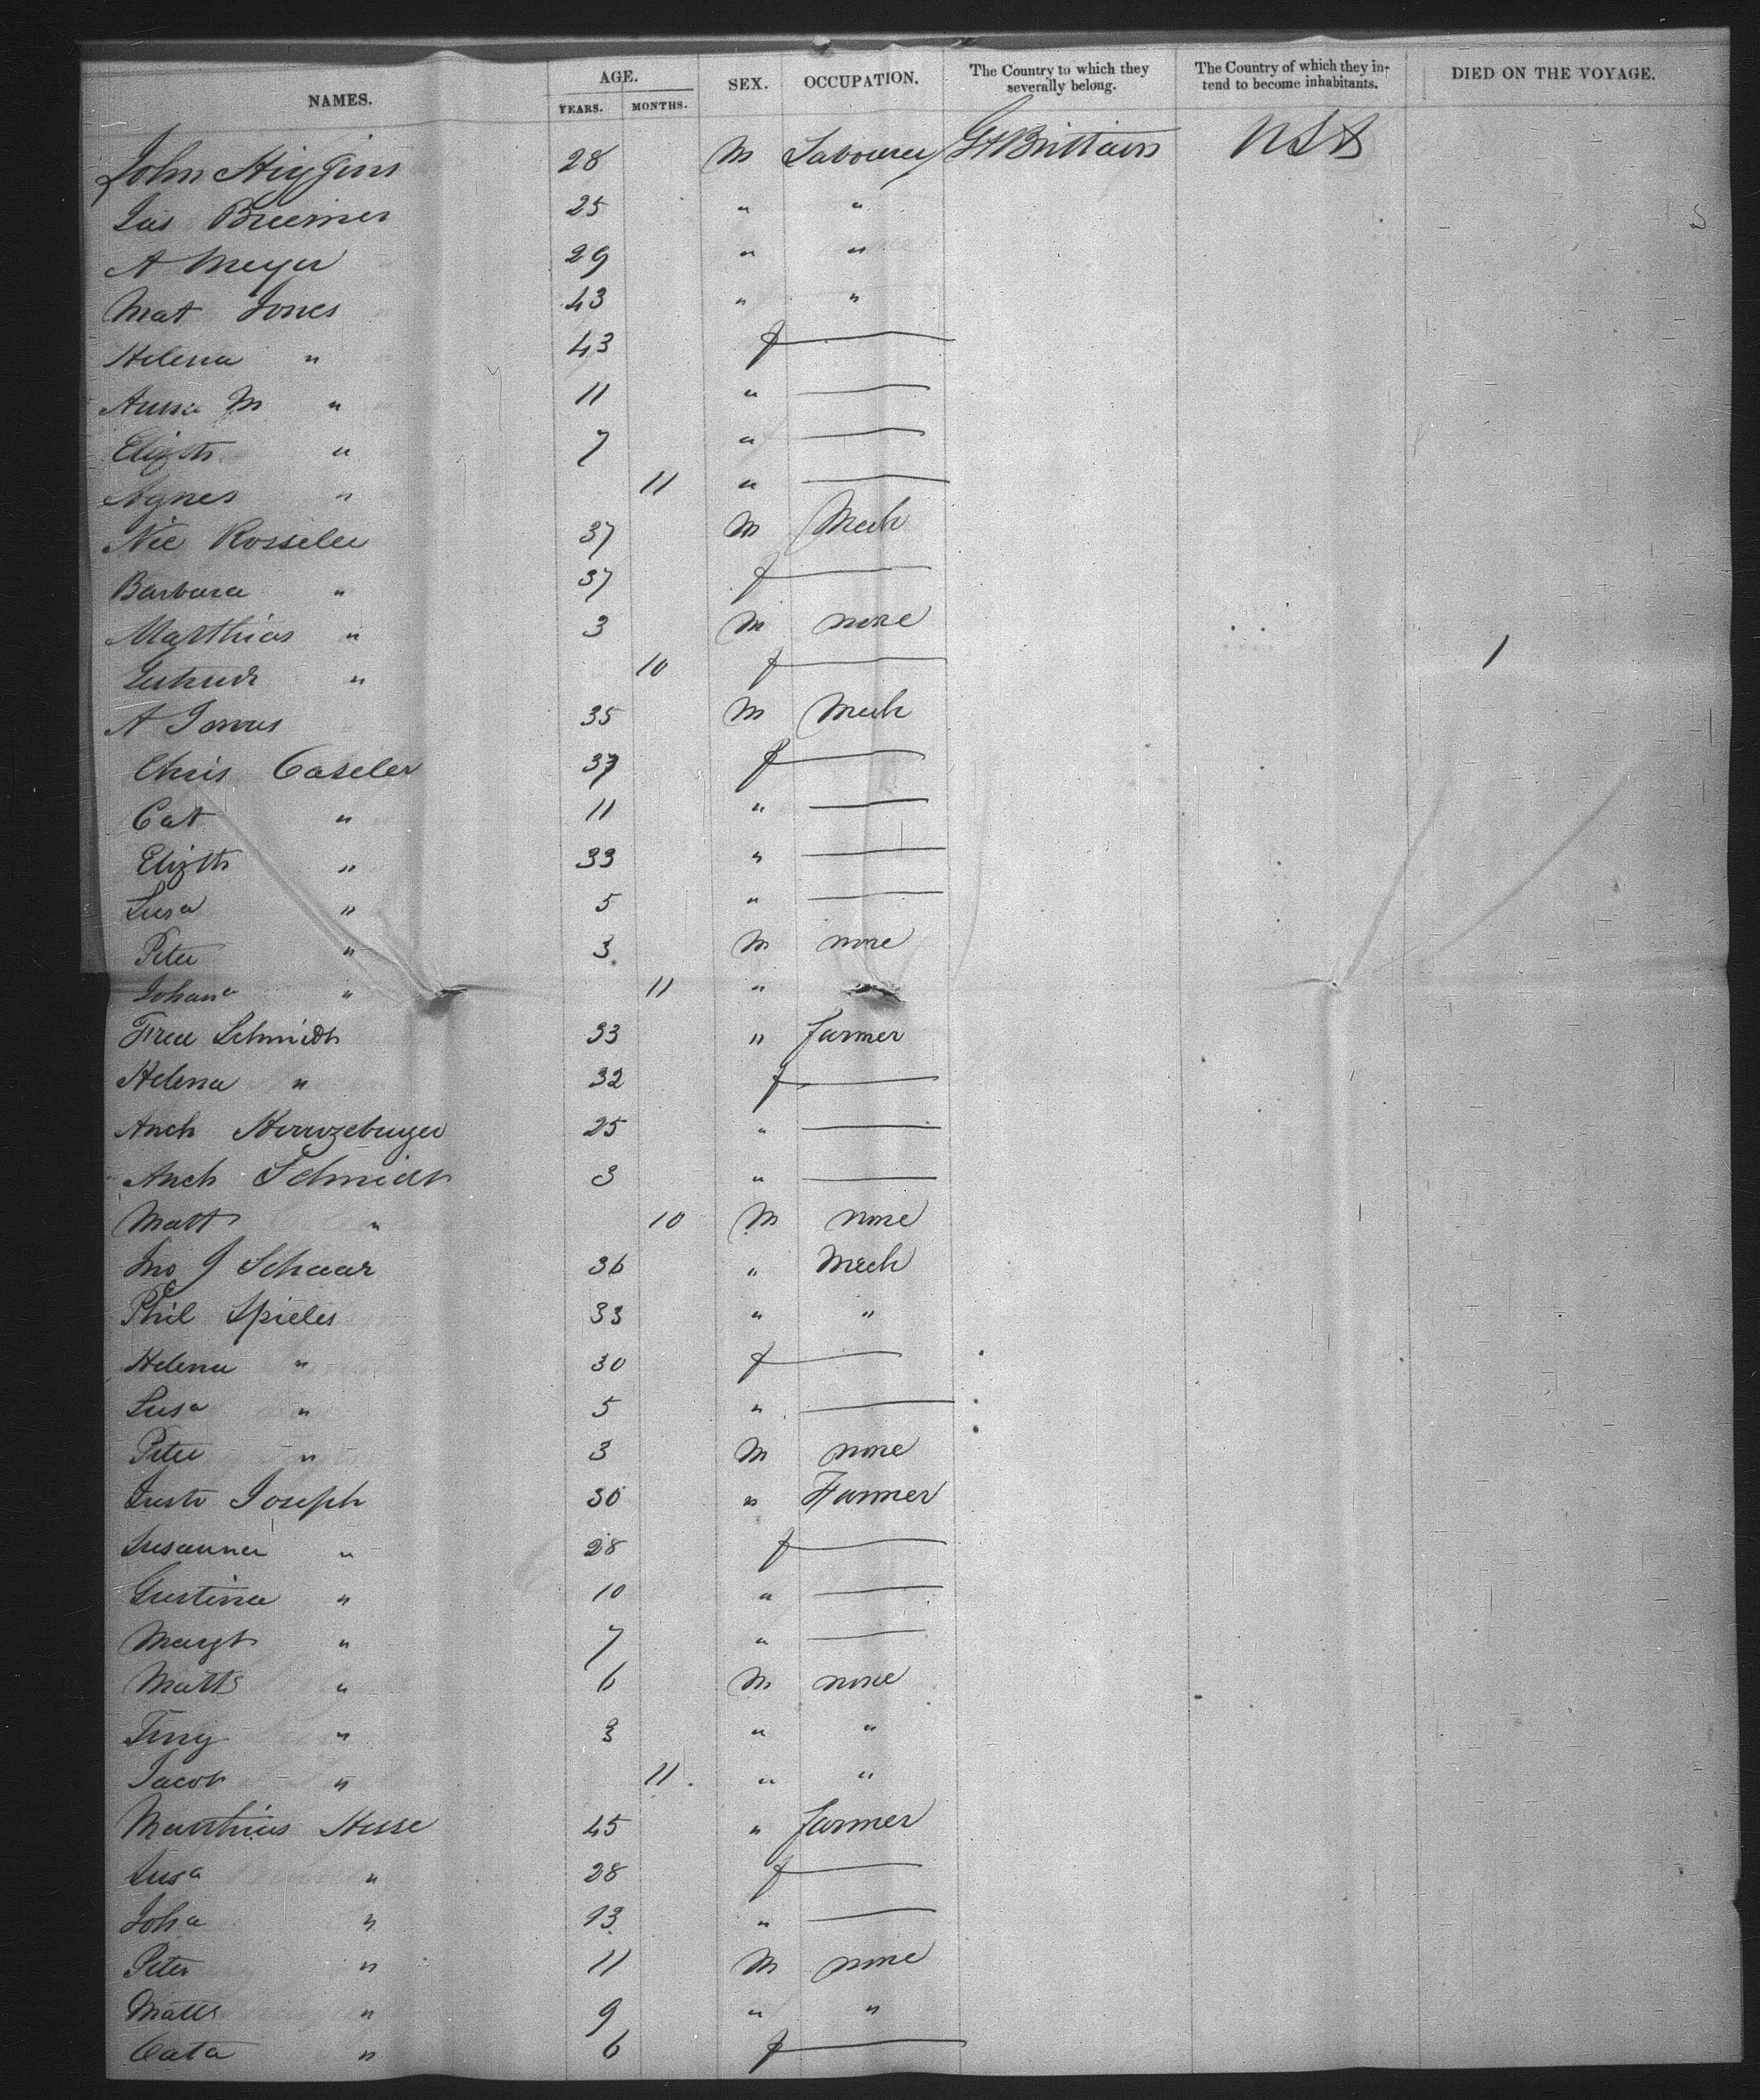 NAMES. AGE. YEARS. MONTHS. SEX. OCCUPATION. The Country to which they severally belong. The Country of which they intend to become inhabitants. DIED ON THE VOYAGE.
John Higgins 28 M Labourer Gt Brittain USA
Jas 25 " "
A Meyer 29 " "
Mat Jones 43 " "
Helena " 43 f
Anna M " 11 "
Elizth " 7 "
Agnes " 11 "
Nic 37 M Mech
Barbara " 37 f
Matthias " 3 M none
" 10 f 1
A 35 M Mech
Chris Caseler 37 f
Cat " 11 "
Elizth " 33 "
Susa " 5 "
Peter " 3 M none
Johana " 11 "
Schmidt 33 " farmer
Helena " 32 f
25 "
Schmidt 3 "
Matt " 10 M none
Jno J Schaar 36 " Mech
Phil Spieles 33 " "
Helena " 30 f
Susa " 5 "
Peter " 3 M none
Joseph 30 " Farmer
Susanna " 28 f
" 10 "
Margt " 7 "
Matts " 6 M none
" 3 " "
Jacob " 11 " "
Matthias Hesse 45 " farmer
Susa " 28 f
Joha " 13 "
Peter " 11 M none
Matts " 9 " "
Cata " 6 f